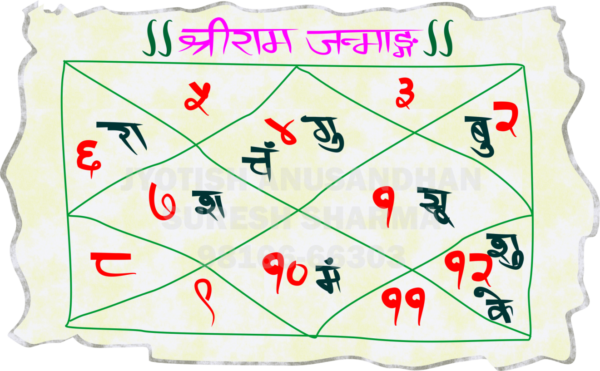 ऽऽ श्रीराम जन्माङ्ग ऽऽ
५ ३
६ रा चं ४ गु बु २
७ श १ सू
JYOTISH ANUSANDHAN
SURESH SHARMA
८ ९ १० मं ११ १२ शु के